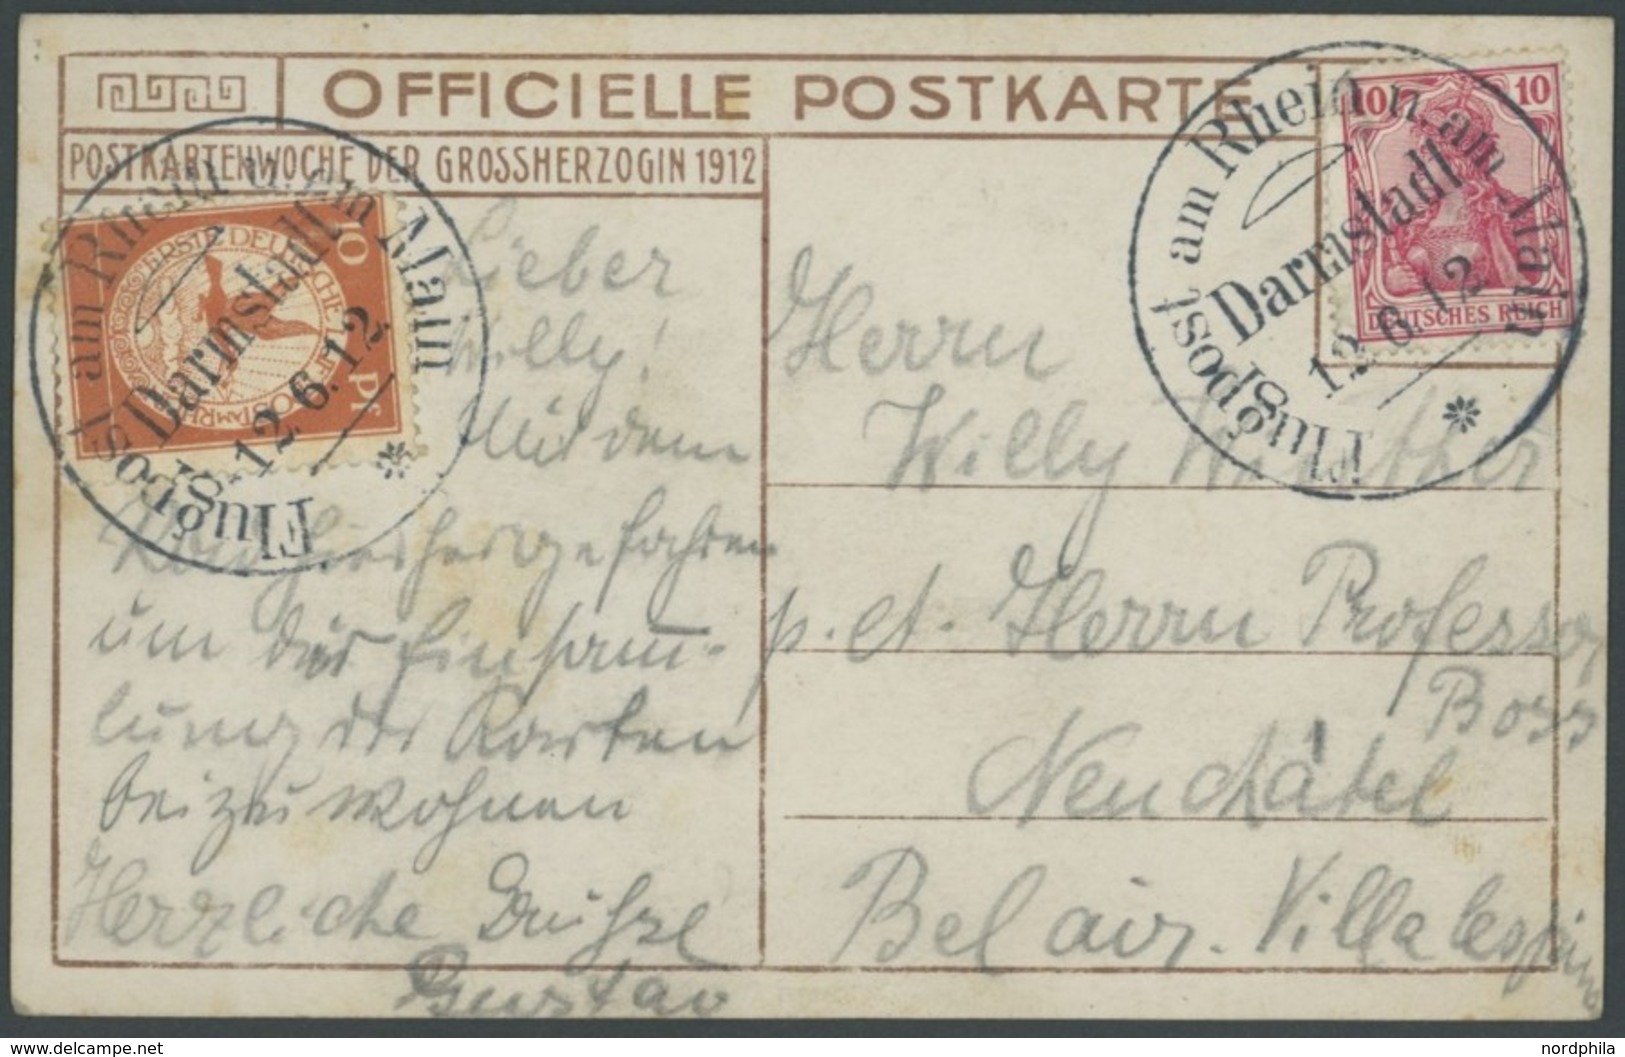 OFFICIELLE POSTKARTE
POSTKARTENWOCHE DER GROSSHERZOGIN 1912
10 10
DEUTSCHES REICH
Flugpost am Rhein u. am Main
Darmstadt
12.6.12
10 Pf
ERSTE DEUTSCHE LUFTPOST AM RHEIN
Flugpost am Rhein u. am Main
Darmstadt
12.6.12
Lieber
Willy!
Mit dem
hierher gefahren
um der Einsamm-
lung der Karten
beizuwohnen
Herzliche
Gustav
Herrn
Willy Winther
p. ad. Herrn Professor
Boss
Neuchâtel
Bel air. Villa
nordphila
www.delcampe.net